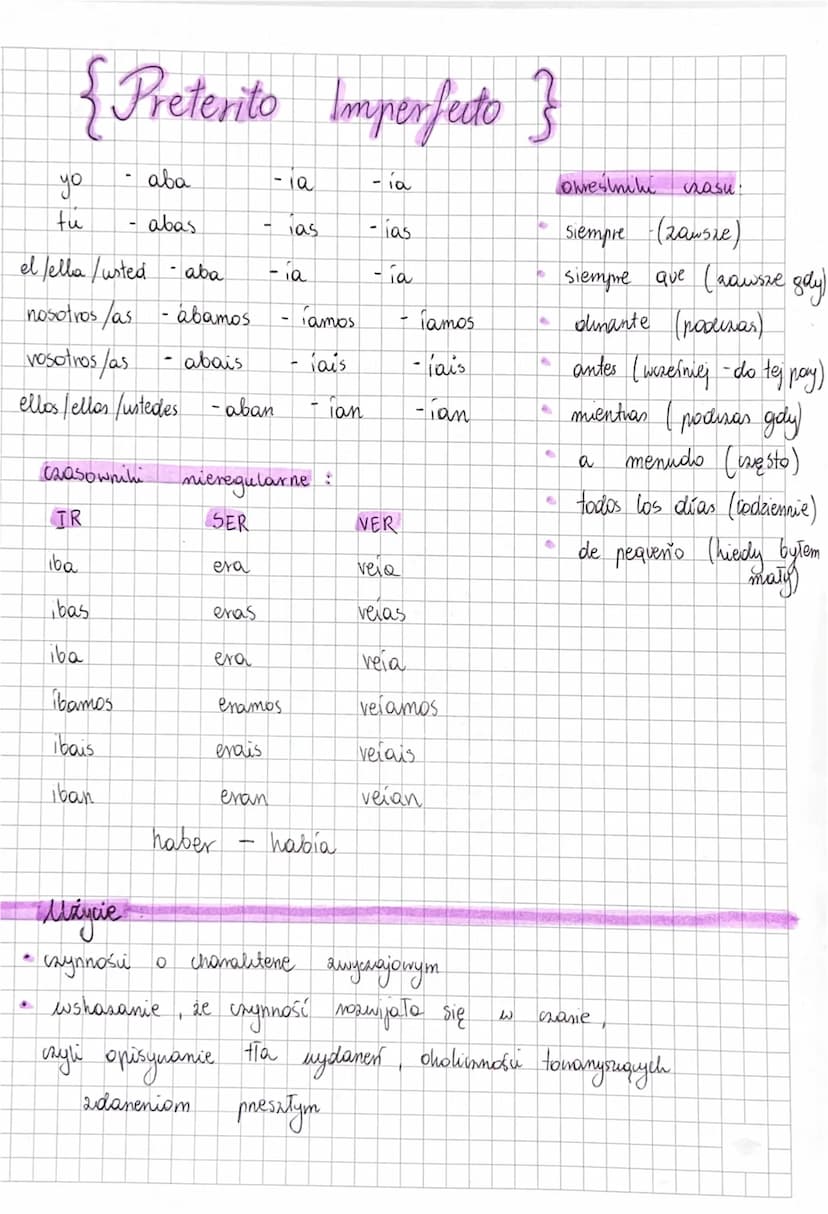 { Preterito Imperfecto }
yo - aba - ía - ía
tú - abas - ías - ías
el/ella/usted - aba - ía - ía
nosotros/as - ábamos - íamos - íamos
vosotros/as - abais - íais - íais
ellos/ellas/ustedes - aban - ían - ían
określniki czasu:
• siempre - (zawsze)
• siempre que (zawsze gdy)
• durante (podczas)
• antes (wcześniej - do tej pory)
• mientras (podczas gdy)
• a menudo (często)
• todos los días (codziennie)
• de pequeño (kiedy byłem
mały)
czasowniki nieregularne :
IR SER VER
iba era veía
ibas eras veías
iba era veía
íbamos eramos veíamos
ibais erais veíais
iban eran veían
haber - había
Użycie
• czynności o charakterze zwyczajowym
• wskazanie, że czynność rozwijała się w czasie,
czyli opisywanie tła wydarzeń, okoliczności towarzyszących
zdarzeniom przeszłym